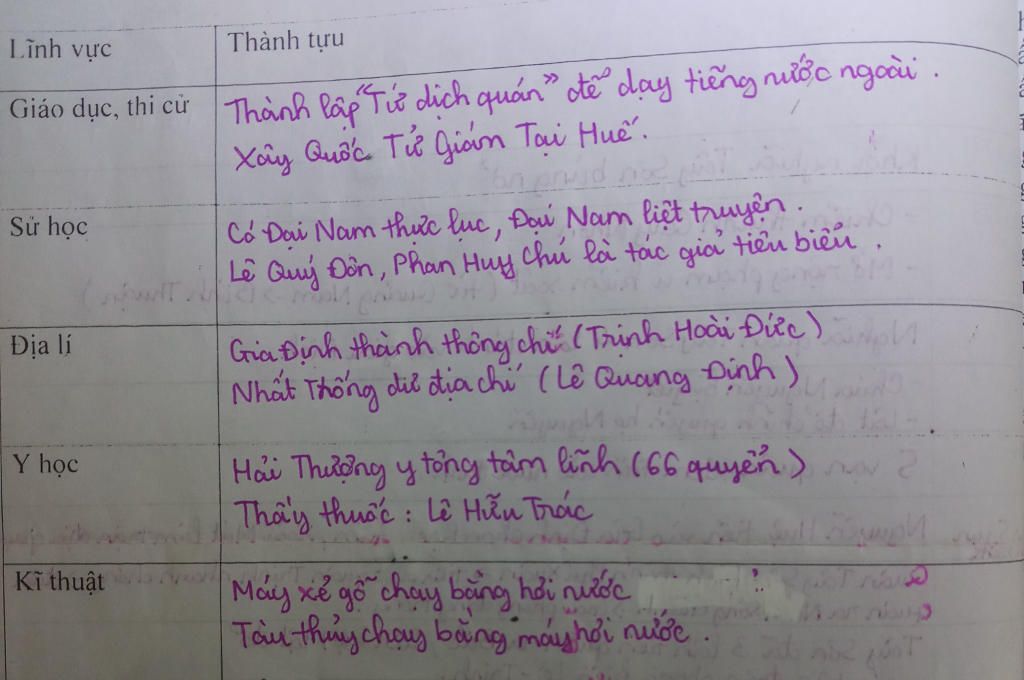 Lĩnh vực
Thành tựu
Giáo dục, thi cử
Thành lập "Tứ dịch quán" để dạy tiếng nước ngoài.
Xây Quốc Tử Giám Tại Huế.
Sử học
Có Đại Nam thực lục, Đại Nam liệt truyện.
Lê Quý Đôn, Phan Huy Chú là tác giả tiêu biểu.
Địa lí
Gia Định thành thông chí (Trịnh Hoài Đức)
Nhất Thống dư địa chí (Lê Quang Định)
Y học
Hải Thượng y tông tâm lĩnh (66 quyển)
Thầy thuốc: Lê Hữu Trác
Kĩ thuật
Máy xẻ gỗ chạy bằng hơi nước
Tàu thủy chạy bằng máy hơi nước.